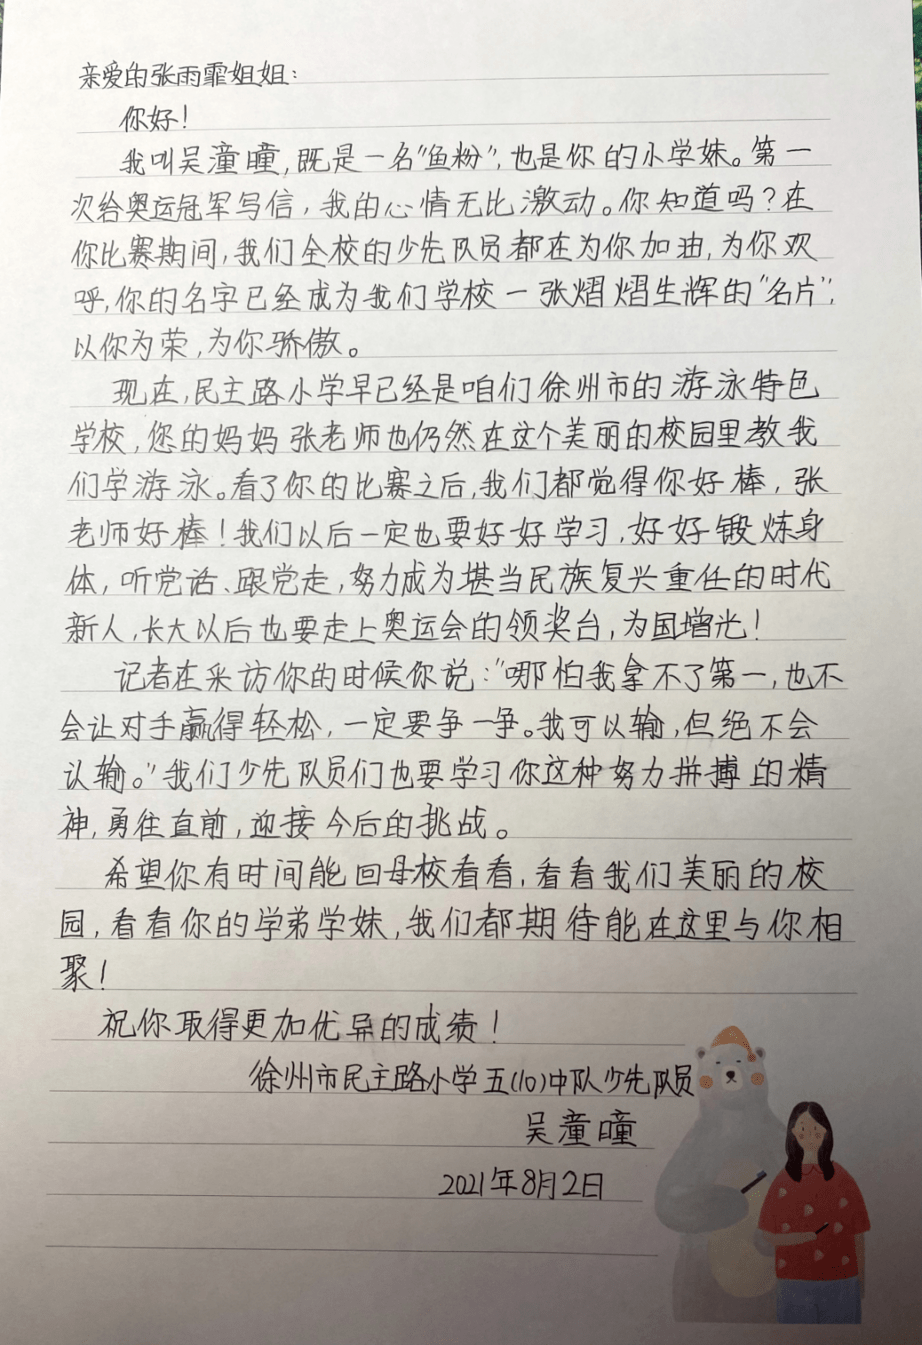 亲爱的张雨霏姐姐:
你好!
我叫吴潼曈,既是一名"鱼粉",也是你的小学妹。第一
次给奥运冠军写信,我的心情无比激动。你知道吗?在
你比赛期间,我们全校的少先队员都在为你加油,为你欢
呼,你的名字已经成为我们学校一张熠熠生辉的"名片",
以你为荣,为你骄傲。
现在,民主路小学早已经是咱们徐州市的游泳特色
学校,您的妈妈张老师也仍然在这个美丽的校园里教我
们学游泳。看了你的比赛之后,我们都觉得你好棒,张
老师好棒!我们以后一定也要好好学习,好好锻炼身
体,听党话、跟党走,努力成为堪当民族复兴重任的时代
新人,长大以后也要走上奥运会的领奖台,为国增光!
记者在采访你的时候你说:"哪怕我拿不了第一,也不
会让对手赢得轻松,一定要争一争。我可以输,但绝不会
认输。"我们少先队员们也要学习你这种努力拼搏的精
神,勇往直前,迎接今后的挑战。
希望你有时间能回母校看看,看看我们美丽的校
园,看看你的学弟学妹,我们都期待能在这里与你相
聚!
祝你取得更加优异的成绩!
徐州市民主路小学五(10)中队少先队员
吴潼曈
2021年8月2日